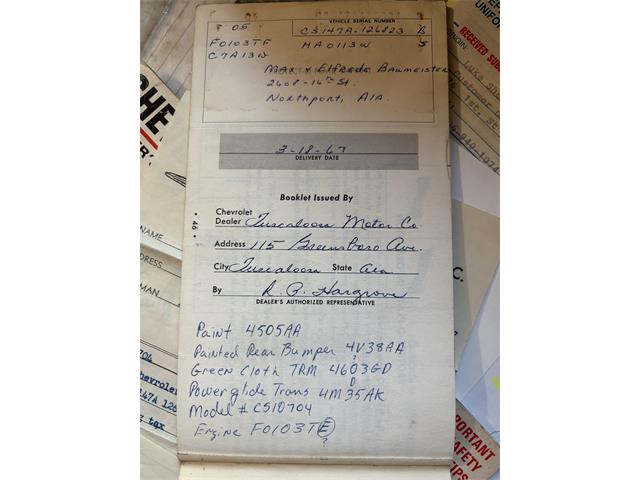 VEHICLE SERIAL NUMBER
05 CS147A-126823 B
F0103TF MA0113W 5
C7A13W
Max & Elfrede Baumeister
2608-16th St.
Northport, Ala.
3-18-67
DELIVERY DATE
Booklet Issued By
Chevrolet
Dealer Tuscaloosa Motor Co.
Address 115 Greensboro Ave.
City Tuscaloosa State Ala
By R. P. Hargrove
DEALER'S AUTHORIZED REPRESENTATIVE
• 46 •
Paint 4505AA
Painted Rear Bumper 4V38AA
?
Green Cloth TRM 4603GD
D
Powerglide Trans 4M35AK
Model # CS10704
Engine F0103TE
?
UNIFOR
RECEIVED
Customer
1st. St
940-1074
C.
CHE
ER'S
NAME
DRESS
MAN
704
hevrolet
47A 126
tax
PORTANT
AFETY
TIPS